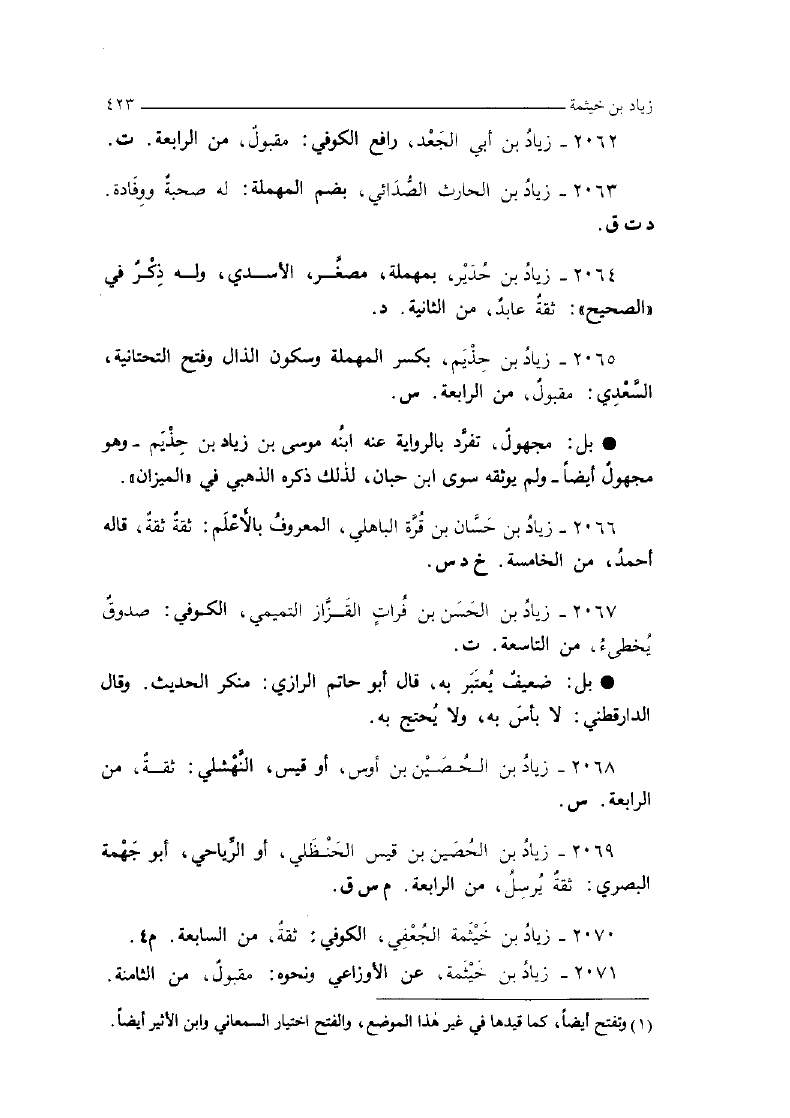 زياد بن خيثمة ــــــــــــــــــــــــــــــــ ٤٢٣
٢٠٦٢ ـ زيادُ بن أبي الجَعْد، رافع الكوفي: مقبولٌ، من الرابعة. ت.
٢٠٦٣ ـ زيادُ بن الحارث الصُّدَائي، بضم المهملة: له صحبةٌ ووِفَادة.
د ت ق.
٢٠٦٤ ـ زيادُ بن حُدَيْر، بمهملة، مصغَّر، الأسدي، وله ذِكْرٌ في
«الصحيح»: ثقةٌ عابدٌ، من الثانية. د.
٢٠٦٥ ـ زيادُ بن حِذْيَم، بكسر المهملة وسكون الذال وفتح التحتانية،
السَّعْدِي: مقبولٌ، من الرابعة. س.
● بل: مجهولٌ، تفرَّد بالرواية عنه ابنُه موسى بن زياد بن حِذْيَم ـ وهو
مجهولٌ أيضاً ـ ولم يوثقه سوى ابن حبان، لذلك ذكره الذهبي في «الميزان».
٢٠٦٦ ـ زيادُ بن حَسَّان بن قُرَّة الباهلي، المعروفُ بالأَعْلَم: ثقةٌ ثقةٌ، قاله
أحمدُ، من الخامسة. خ د س.
٢٠٦٧ ـ زيادُ بن الحَسَن بن فُراتٍ القَزَّاز التميمي، الكوفي: صدوقٌ
يُخطىءُ، من التاسعة. ت.
● بل: ضعيفٌ يُعتَبَر به، قال أبو حاتم الرازي: منكر الحديث. وقال
الدارقطني: لا بأسَ به، ولا يُحتج به.
٢٠٦٨ ـ زيادُ بن الحُصَيْن بن أوس، أو قيس، النَّهْشلي: ثقةٌ، من
الرابعة. س.
٢٠٦٩ ـ زيادُ بن الحُصَين بن قيس الحَنْظَلي، أو الرِّياحي، أبو جَهْمة
البصري: ثقةٌ يُرسِلُ، من الرابعة. م س ق.
٢٠٧٠ ـ زيادُ بن خَيْثَمة الجُعْفِي، الكوفي: ثقةٌ، من السابعة. م٤.
٢٠٧١ ـ زيادُ بن خَيْثَمة، عن الأوزاعي ونحوه: مقبولٌ، من الثامنة.
(١) وتفتح أيضاً، كما قيدها في غير هٰذا الموضع، والفتح اختيار السمعاني وابن الأثير أيضاً.